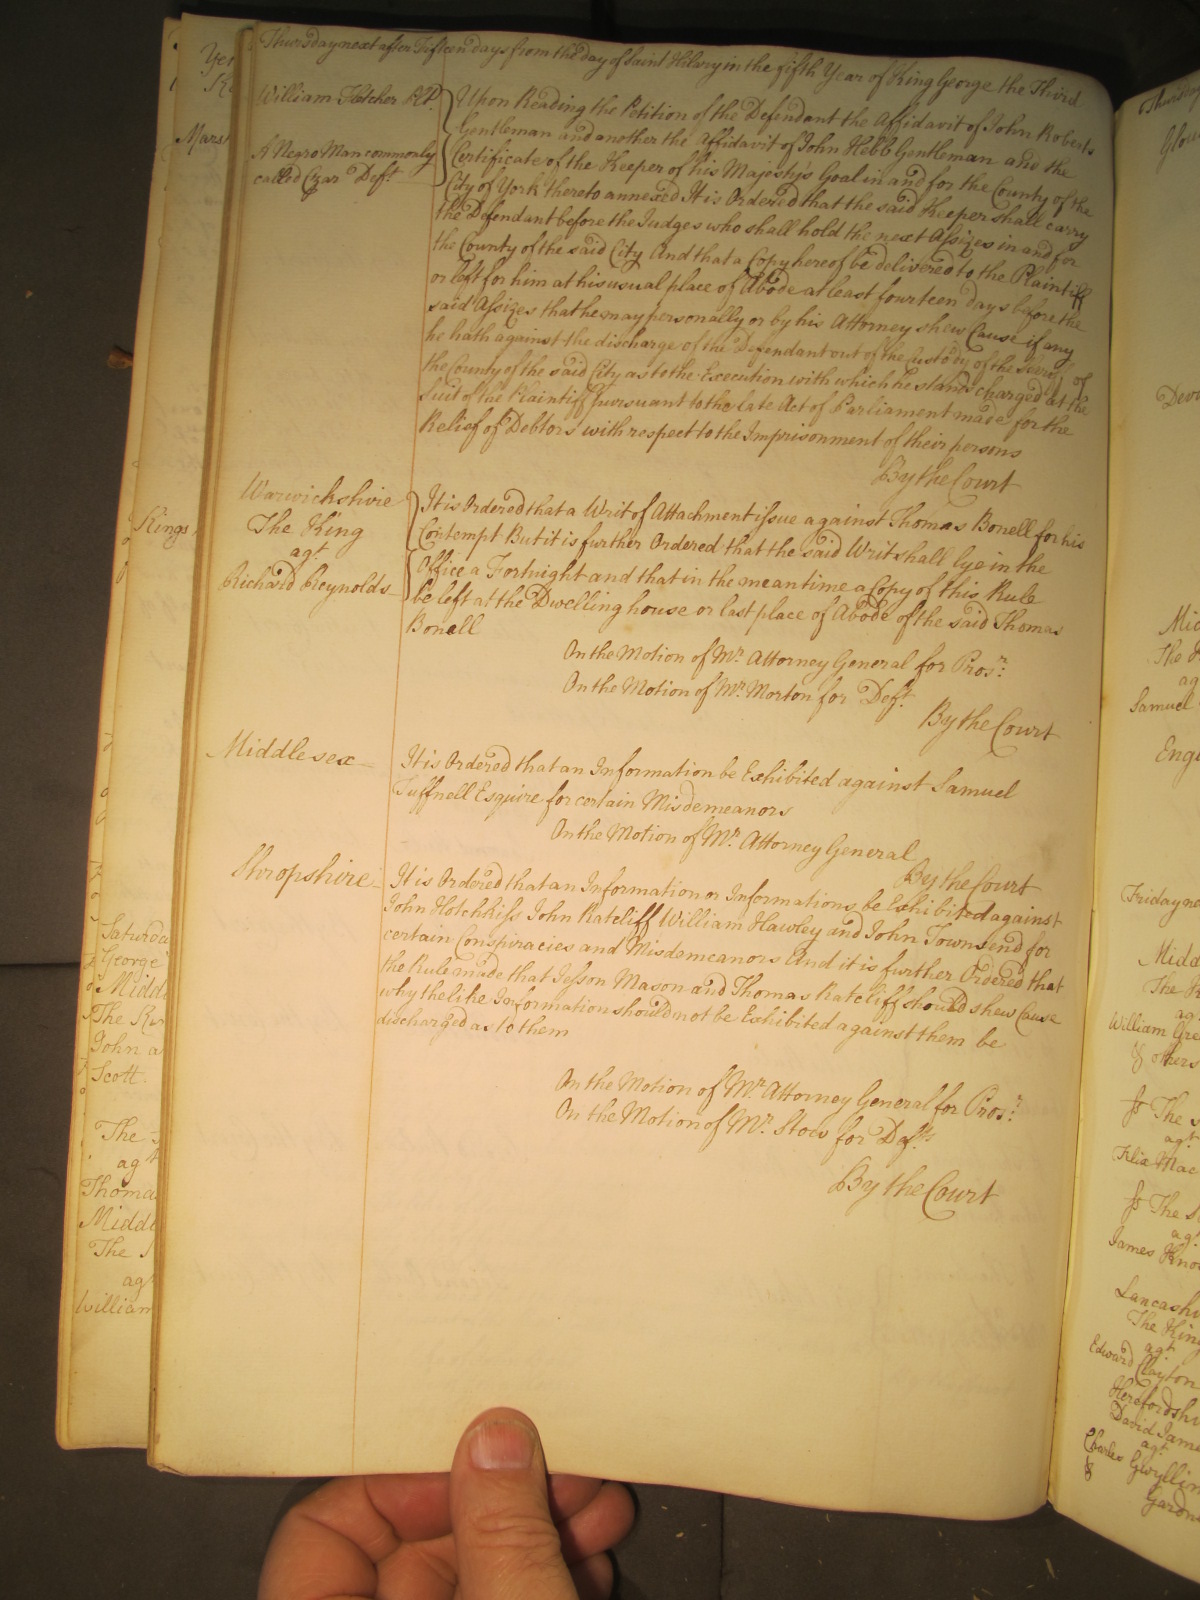 Thursday next after Fifteen days from the day of Saint Hilary in the fifth Year of King George the Third
William Fletcher Pl.t
A Negro Man commonly
called Czar Def.t
Upon Reading the Petition of the Defendant the Affidavit of John Roberts
Gentleman and another the Affidavit of John Hebb Gentleman and the
Certificate of the Keeper of his Majesty's Goal in and for the County of the
City of York thereto annexed It is Ordered that the said Keeper shall carry
the Defendant before the Judges who shall hold the next Assizes in and for
the County of the said City And that a Copy hereof be delivered to the Plaintiff
or left for him at his usual place of Abode at least fourteen days before the
said Assizes that he may personally or by his Attorney shew Cause if any
he hath against the discharge of the Defendant out of the Custody of the Sheriff of
the County of the said City as to the Execution with which he stands charged at the
Suit of the Plaintiff pursuant to the late Act of Parliament made for the
Relief of Debtors with respect to the Imprisonment of their persons
By the Court
Warwickshire
The King
ag.t
Richard Reynolds
It is Ordered that a Writ of Attachment issue against Thomas Bonell for his
Contempt But it is further Ordered that the said Writ shall lye in the
Office a Fortnight and that in the mean time a Copy of this Rule
be left at the Dwelling house or last place of Abode of the said Thomas
Bonell
On the Motion of M.r Attorney General for Pros.r
On the Motion of M.r Morton for Def.t
By the Court
Middlesex
It is Ordered that an Information be Exhibited against Samuel
Tuffnell Esquire for certain Misdemeanors
On the Motion of M.r Attorney General
By the Court
Shropshire
It is Ordered that an Information or Informations be Exhibited against
John Hotchkiss John Ratcliff William Hawley and John Townsend for
certain Conspiracies and Misdemeanors And it is further Ordered that
the Rule made that Jesson Mason and Thomas Ratcliff should shew Cause
why the like Information should not be Exhibited against them be
discharged as to them
On the Motion of M.r Attorney General for Pros.r
On the Motion of M.r Stow for Def.ts
By the Court
Kings
Saturda
George
Midd
The
John a
Scott
The
ag.t
Thoma
Midd
The
ag.t
William
The
ag
Samuel
Friday ne
Midd
The
ag.t
William Gre
& others
The
ag.t
Felix Mac
The
ag.t
James Kno
Lancash
The King
ag.t
Edward Clayton
Herefordshi
David Jame
ag.t
Charles Gwyllin
&
Gardn